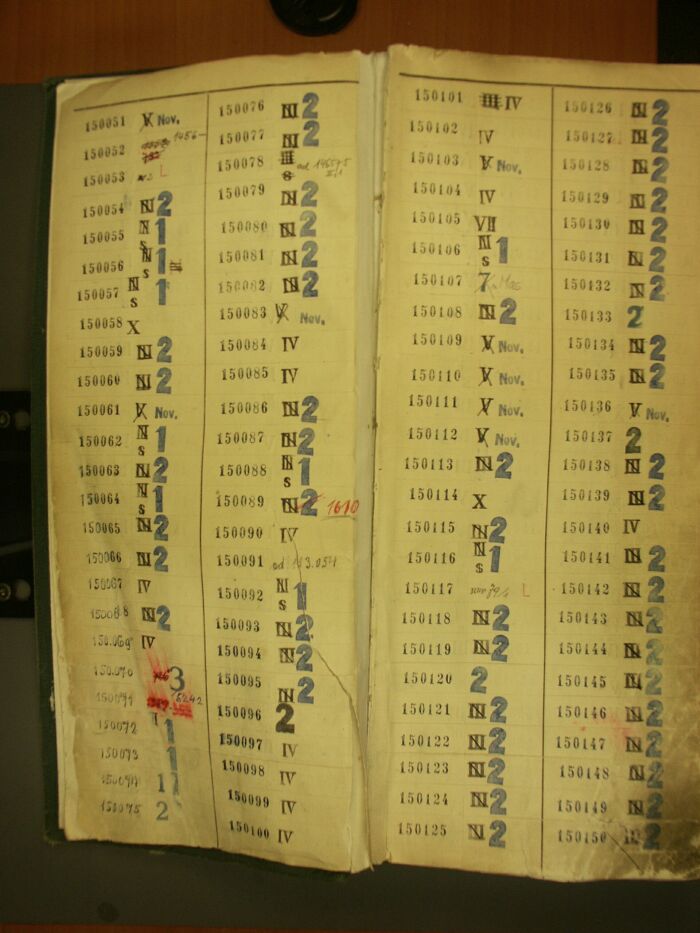 150051 V Nov.
150052 1456-
150053 L
150054 N 2
150055 N s 1
150056 N s 1
150057 N s 1
150058 X
150059 N 2
150060 N 2
150061 V Nov.
150062 N s 1
150063 N 2
150064 N s 1
150065 N 2
150066 N 2
150067 IV
150068 N 2
150.069 IV
150.070 3
150071
150072 1
150073 1
150074 1
150075 2
150076 N 2
150077 N 2
150078
150079 N 2
150080 N 2
150081 N 2
150082 N 2
150083 V Nov.
150084 IV
150085 IV
150086 N 2
150087 N 2
150088 N s 1
150089 N 2 1610
150090 IV
150091
150092 N s 1
150093 N 2
150094 N 2
150095 N 2
150096 2
150097 IV
150098 IV
150099 IV
150100 IV
150101 IV
150102 IV
150103 V Nov.
150104 IV
150105 VII
150106 N s 1
150107 7
150108 N 2
150109 V Nov.
150110 V Nov.
150111 V Nov.
150112 V Nov.
150113 N 2
150114 X
150115 N 2
150116 N s 1
150117 L
150118 N 2
150119 N 2
150120 2
150121 N 2
150122 N 2
150123 N 2
150124 N 2
150125 N 2
150126 N 2
150127 N 2
150128 N 2
150129 N 2
150130 N 2
150131 N 2
150132 N 2
150133 2
150134 N 2
150135 N 2
150136 V Nov.
150137 2
150138 N 2
150139 N 2
150140 IV
150141 N 2
150142 N 2
150143 N 2
150144 N 2
150145 N 2
150146 N 2
150147 N 2
150148 N 2
150149 N 2
150150 N 2